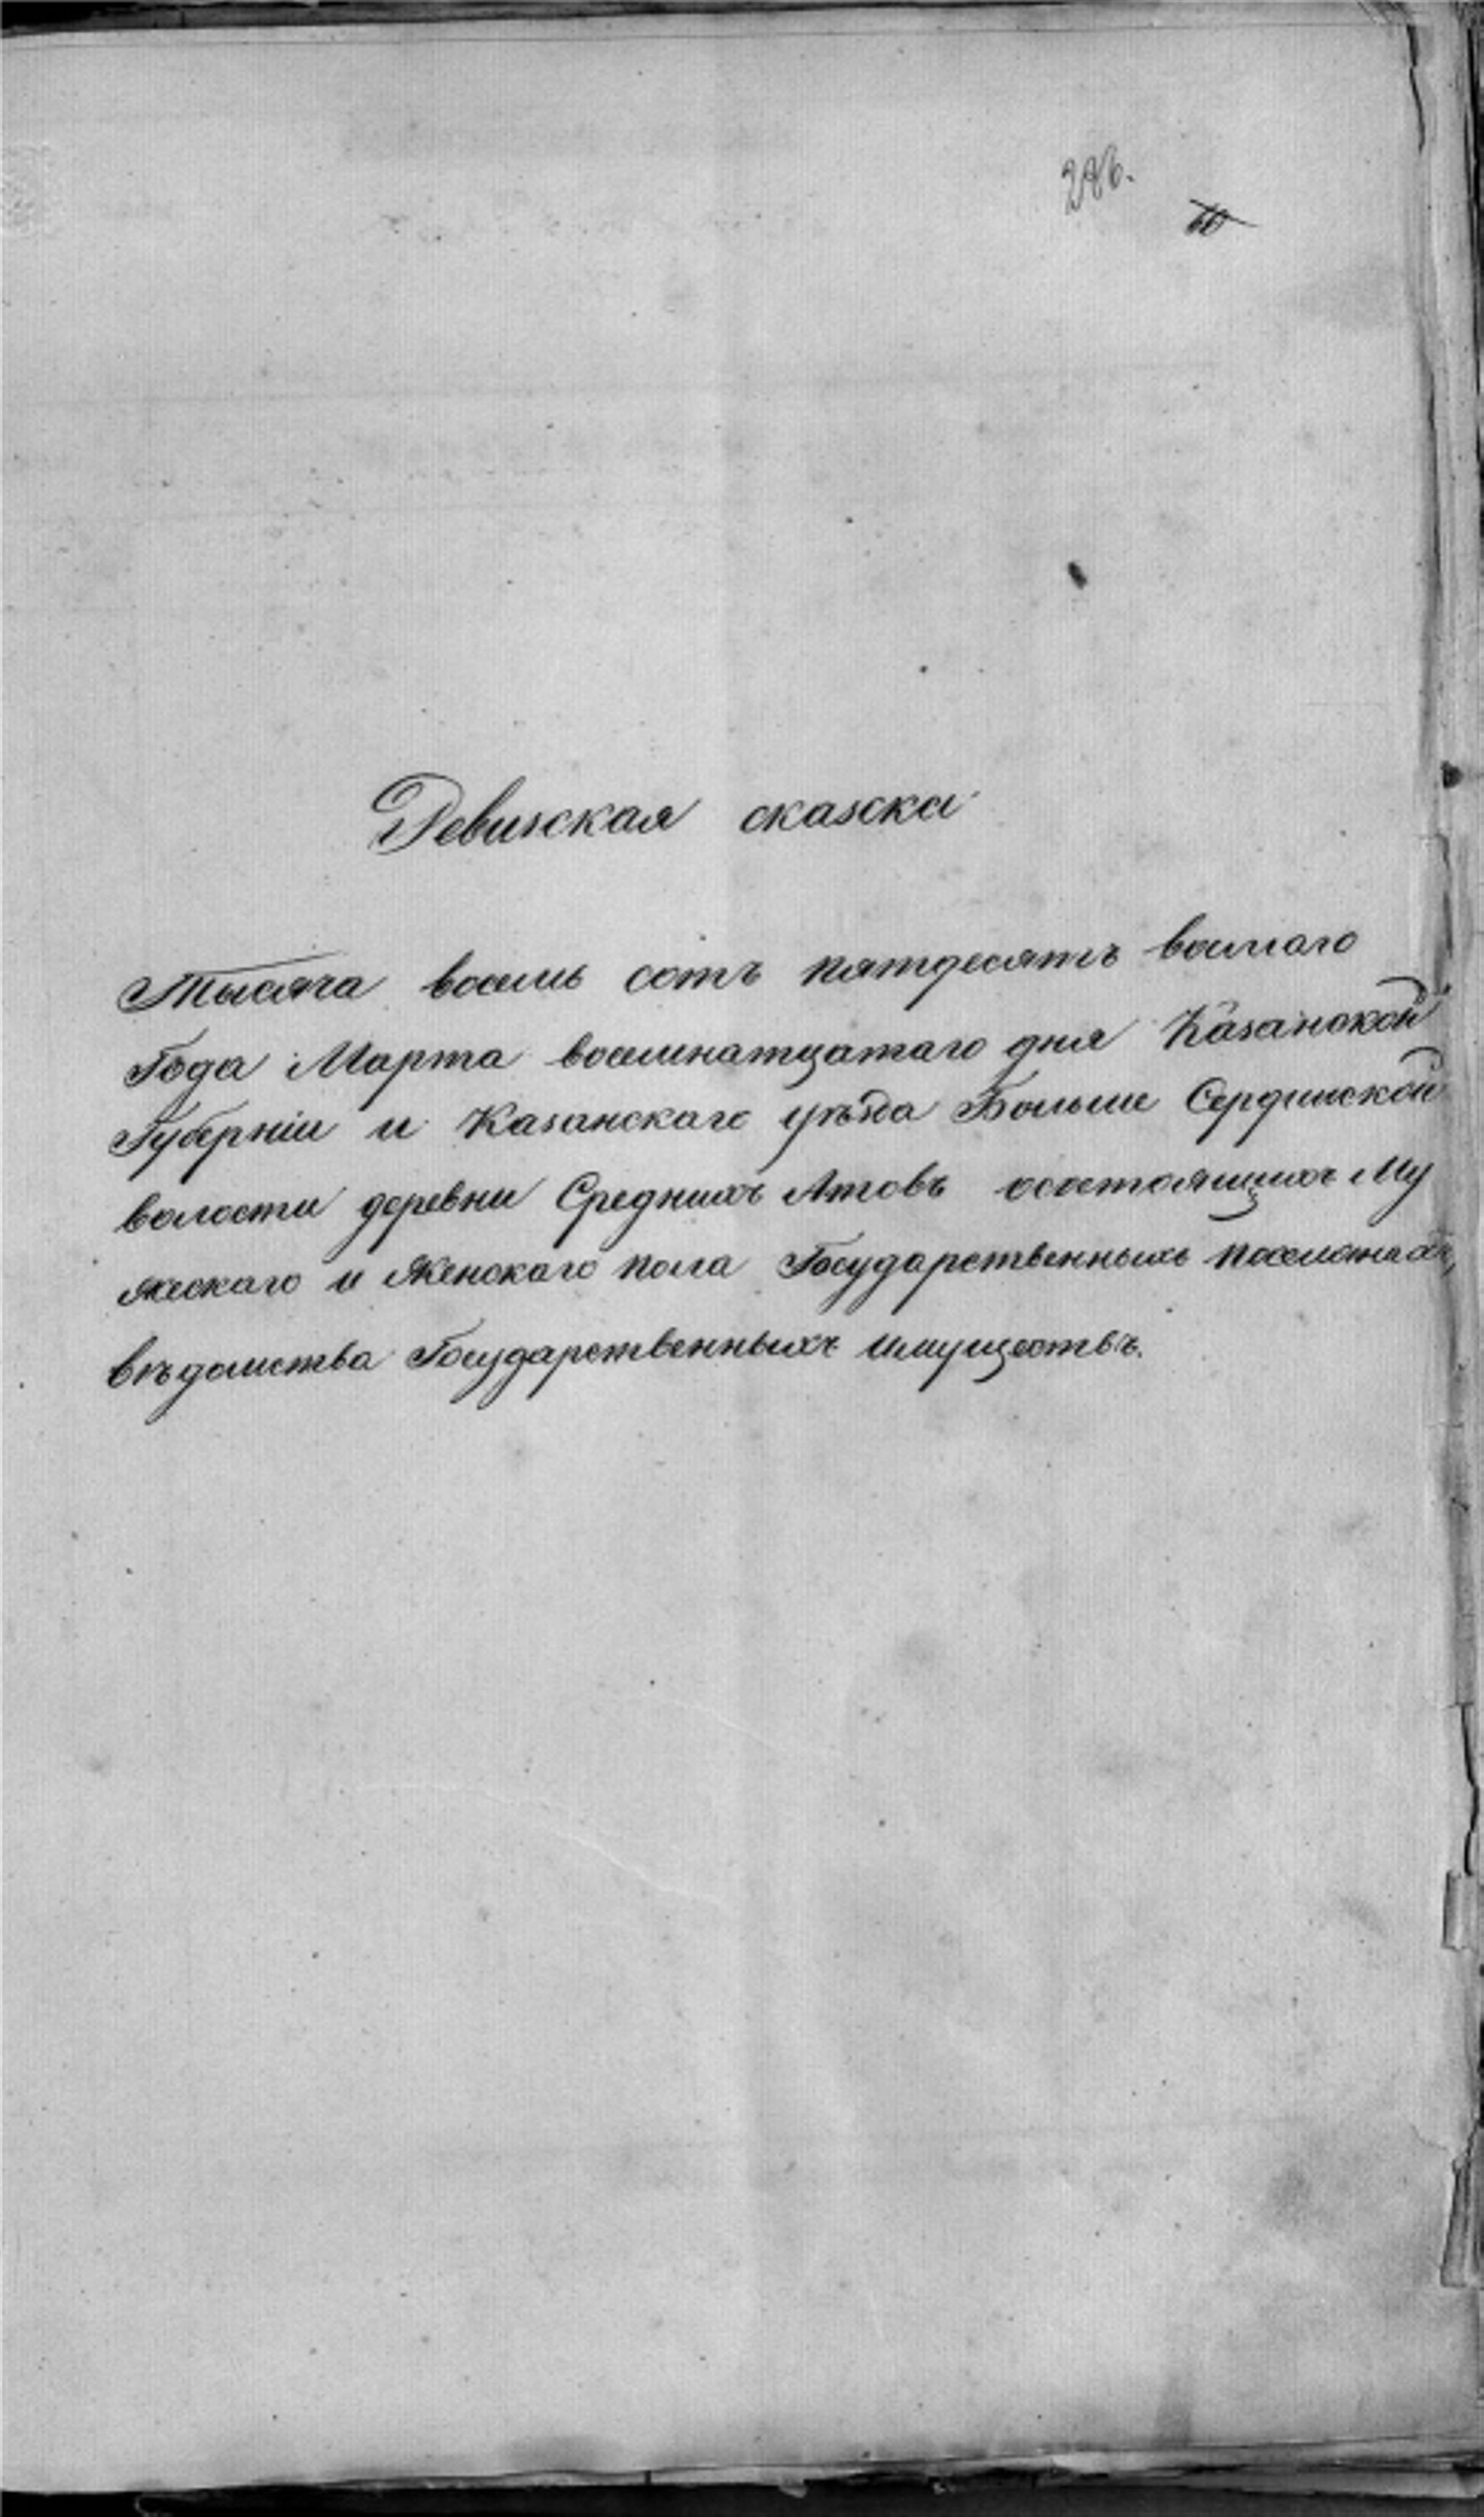 286.
Ревизская сказска
Тысяча восемь сотъ пятдесятъ восмаго
Года Марта восемнатцатаго дня Казанской
Губерніи и Казанскаго уѣзда Больше Сердинской
волости деревни Среднихъ Атовъ осостоящихъ Му
жескаго и Женскаго пола Государственныхъ
вѣдомства Государственныхъ Имуществъ.